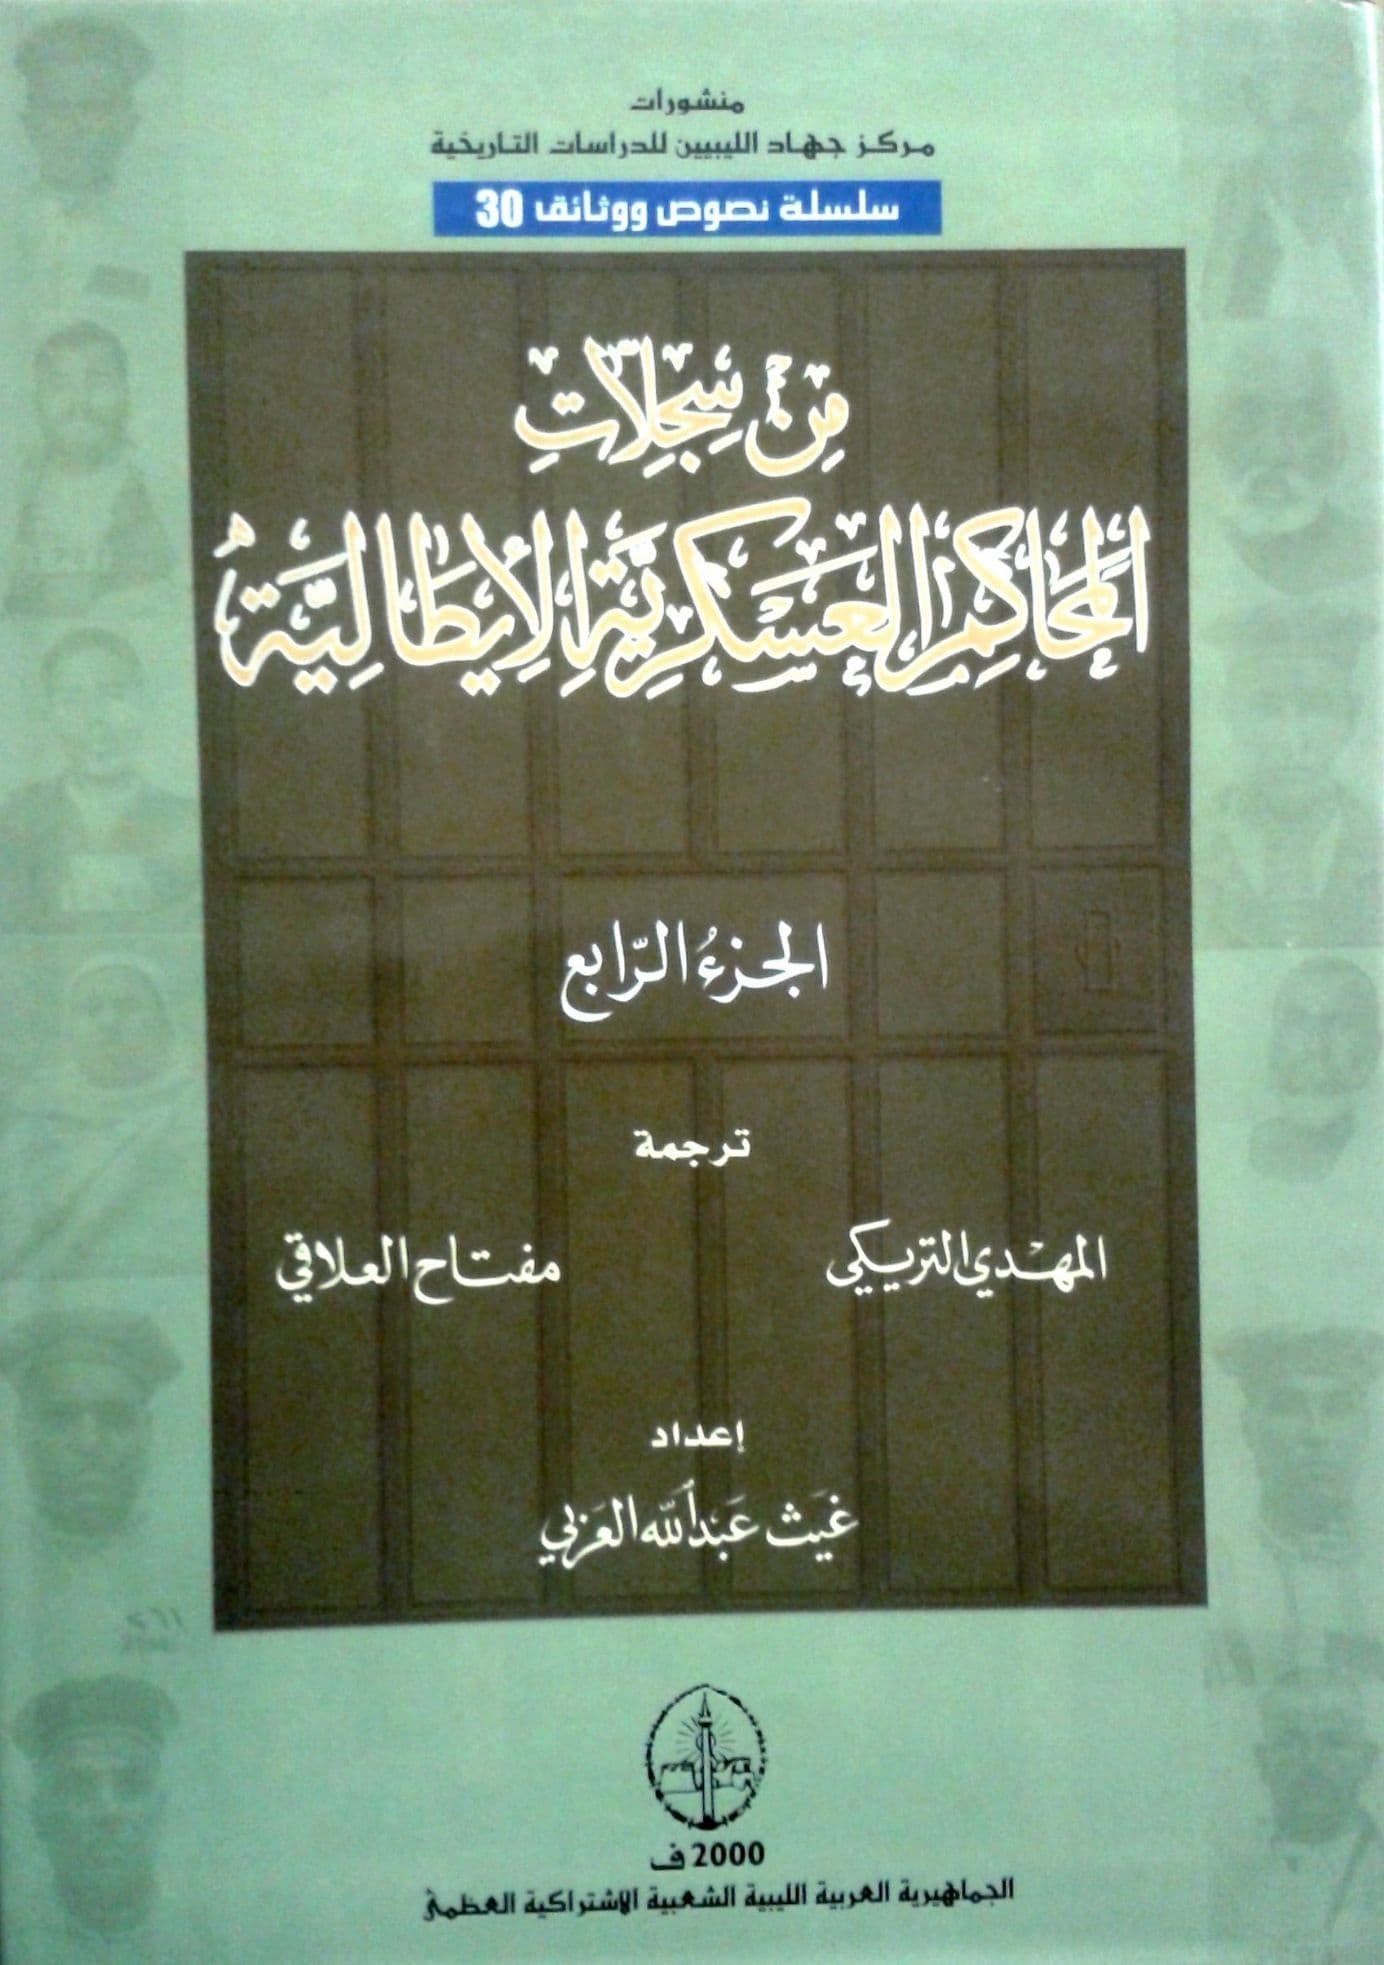 منشورات
مركز جهاد الليبيين للدراسات التاريخية
سلسلة نصوص ووثائق 30
مِن سِجِلّاتِ
المحَاكِم العَسكريَّةِ الإيطَاليَّة
الجزءُ الرّابع
ترجمة
المهْدي التريكي
مفتاح العلاقي
إعداد
غَيَث عَبدالله العَزبي
2000 ف
الجماهيرية العربية الليبية الشعبية الاشتراكية العظمى